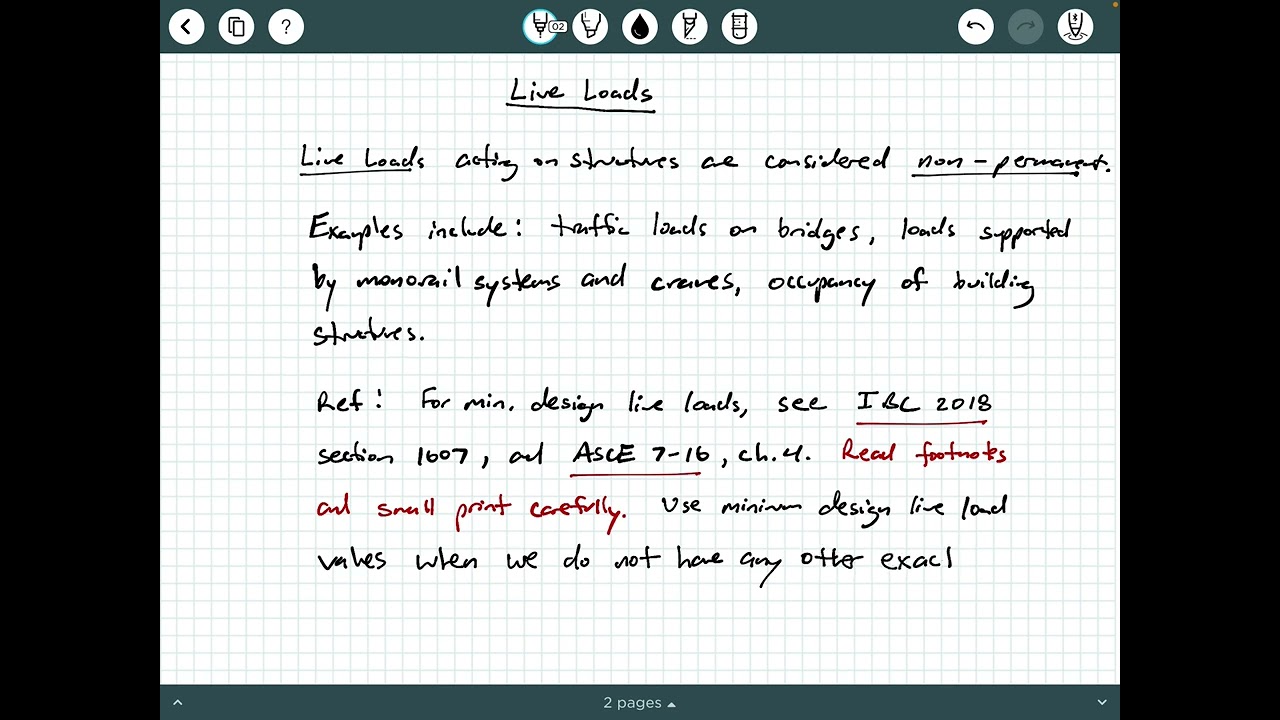 02
Live Loads
Live Loads acting on structures are considered non-permanent.
Examples include: traffic loads on bridges, loads supported
by monorail systems and cranes, occupancy of building
structures.
Ref: For min. design live loads, see IBC 2018
section 1607, and ASCE 7-16, ch.4. Read footnotes
and small print carefully. Use minimum design live load
values when we do not have any other exact
2 pages